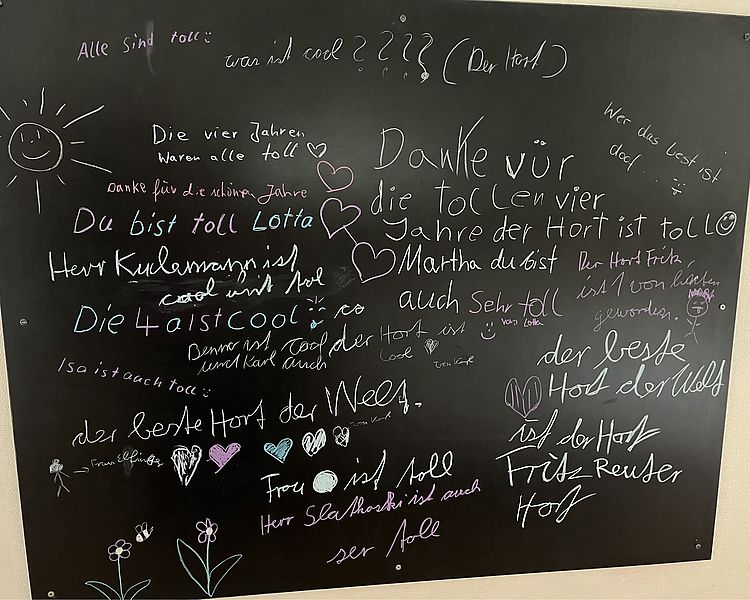 Alle sind toll
was ist cool ???? (Der Hort)
Wer das best ist
doof ...
Die vier Jahren
waren alle toll
Danke für die schönen Jahre
Du bist toll Lotta
Danke vür
die tollen vier
Jahre der Hort ist toll
Herr ist
cool und tol
Martha du bist
auch Sehr toll
von Lotta
Der Hort Fritz,
ist 1 von
geworden.
Die 4a ist cool
Benno ist cool
und Karl auch
der Hort ist
cool
Isa ist auch toll
der beste Hort der Welt.
der beste
Hort der Welt
ist der Hort
Fritz Reuter
Hort
Frau
Frau ist toll
Herr Slatkoski ist auch
ser toll